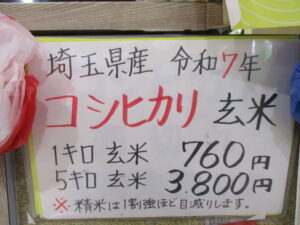 埼玉県産 令和7年
コシヒカリ 玄米
1キロ 玄米 760円
5キロ 玄米 3.800円
※ 精米は1割強ほど目減りします。